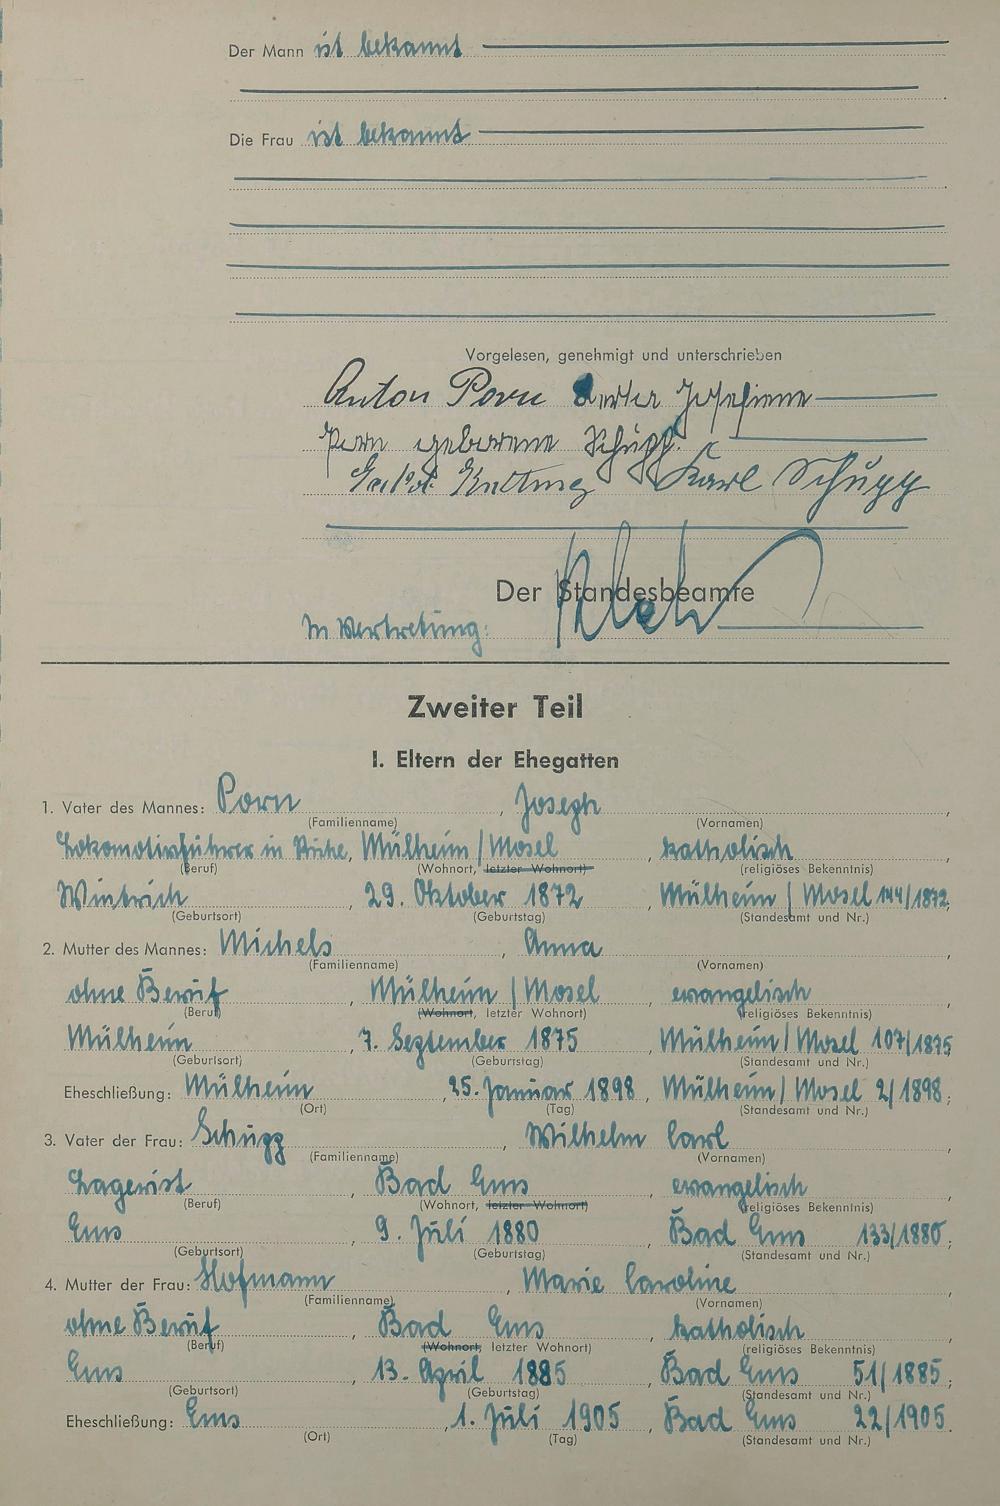 Der Mann ist bekannt
Die Frau ist bekannt
Vorgelesen, genehmigt und unterschrieben
Anton Porn Josefiene
Porn geborene Schugg.
Karl Schugg
Der Standesbeamte
In Vertretung:
Zweiter Teil
I. Eltern der Ehegatten
1. Vater des Mannes: Porn, Joseph,
(Familienname) (Vornamen)
Lokomotivführer in Ruhe, Mülheim/Mosel, katholisch
(Beruf) (Wohnort, letzter Wohnort) (religiöses Bekenntnis)
Wintrich, 29. Oktober 1872, Mülheim/Mosel 144/1872;
(Geburtsort) (Geburtstag) (Standesamt und Nr.)
2. Mutter des Mannes: Michels, Anna,
(Familienname) (Vornamen)
ohne Beruf, Mülheim/Mosel, evangelisch,
(Beruf) (Wohnort, letzter Wohnort) (religiöses Bekenntnis)
Mülheim, 7. September 1875, Mülheim/Mosel 107/1875
(Geburtsort) (Geburtstag) (Standesamt und Nr.)
Eheschließung: Mülheim, 25. Januar 1898, Mülheim/Mosel 2/1898;
(Ort) (Tag) (Standesamt und Nr.)
3. Vater der Frau: Schugg, Wilhelm Carl,
(Familienname) (Vornamen)
Lagerist, Bad Ems, evangelisch,
(Beruf) (Wohnort, letzter Wohnort) (religiöses Bekenntnis)
Ems, 9. Juli 1880, Bad Ems 133/1880;
(Geburtsort) (Geburtstag) (Standesamt und Nr.)
4. Mutter der Frau: Hofmann, Marie Caroline,
(Familienname) (Vornamen)
ohne Beruf, Bad Ems, katholisch,
(Beruf) (Wohnort, letzter Wohnort) (religiöses Bekenntnis)
Ems, 13. April 1885, Bad Ems 51/1885;
(Geburtsort) (Geburtstag) (Standesamt und Nr.)
Eheschließung: Ems, 1. Juli 1905, Bad Ems 22/1905.
(Ort) (Tag) (Standesamt und Nr.)